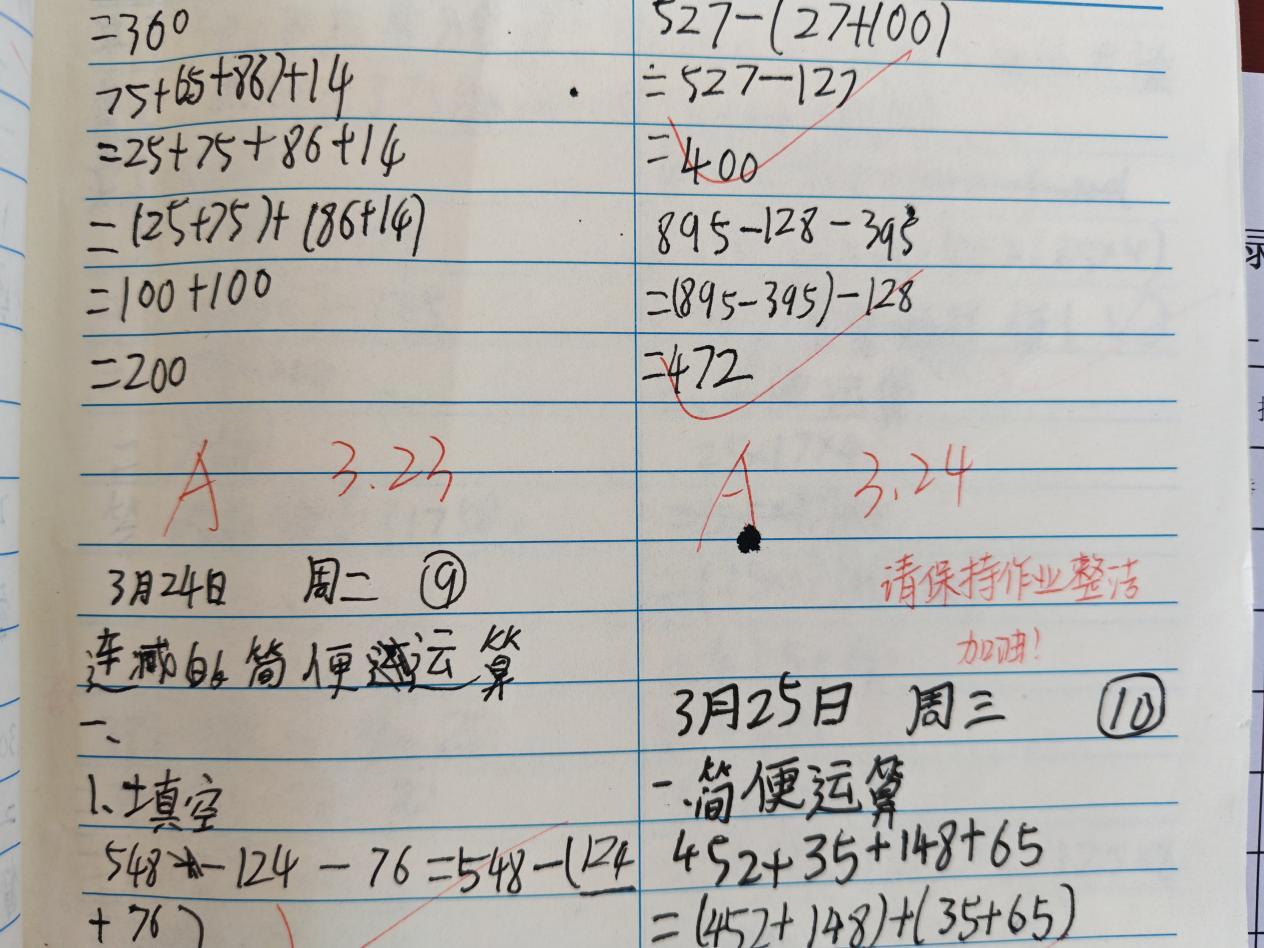 =360
75+(65+86)+14
=25+75+86+14
=(25+75)+(86+14)
=100+100
=200
A 3.23
3月24日 周二 ⑨
连减的简便运算
一、
1、填空
548-124-76=548-(124
+76)
527-(27+100)
=527-127
=400
895-128-395
=(895-395)-128
=472
A 3.24
请保持作业整洁
加油!
3月25日 周三 ⑩
一.简便运算
452+35+148+65
=(452+148)+(35+65)